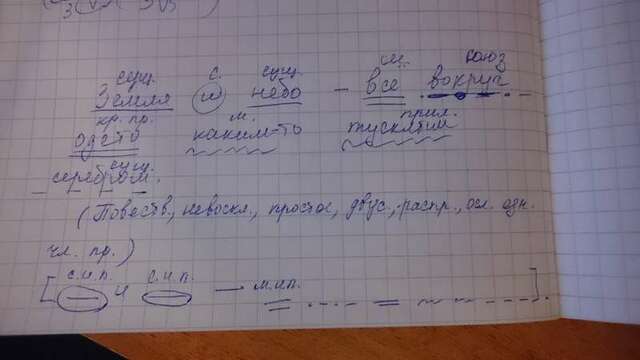 сущ. с. сущ. м. союз
Земля и небо – всё вокруг
кр. пр. м. прил.
одето каким-то тусклым
сущ.
серебром.
(Повеств., невоскл., простое, двус., распр., осл. одн.
чл. пр.)
с.и.п. с.и.п. м.и.п.
[ и — ].